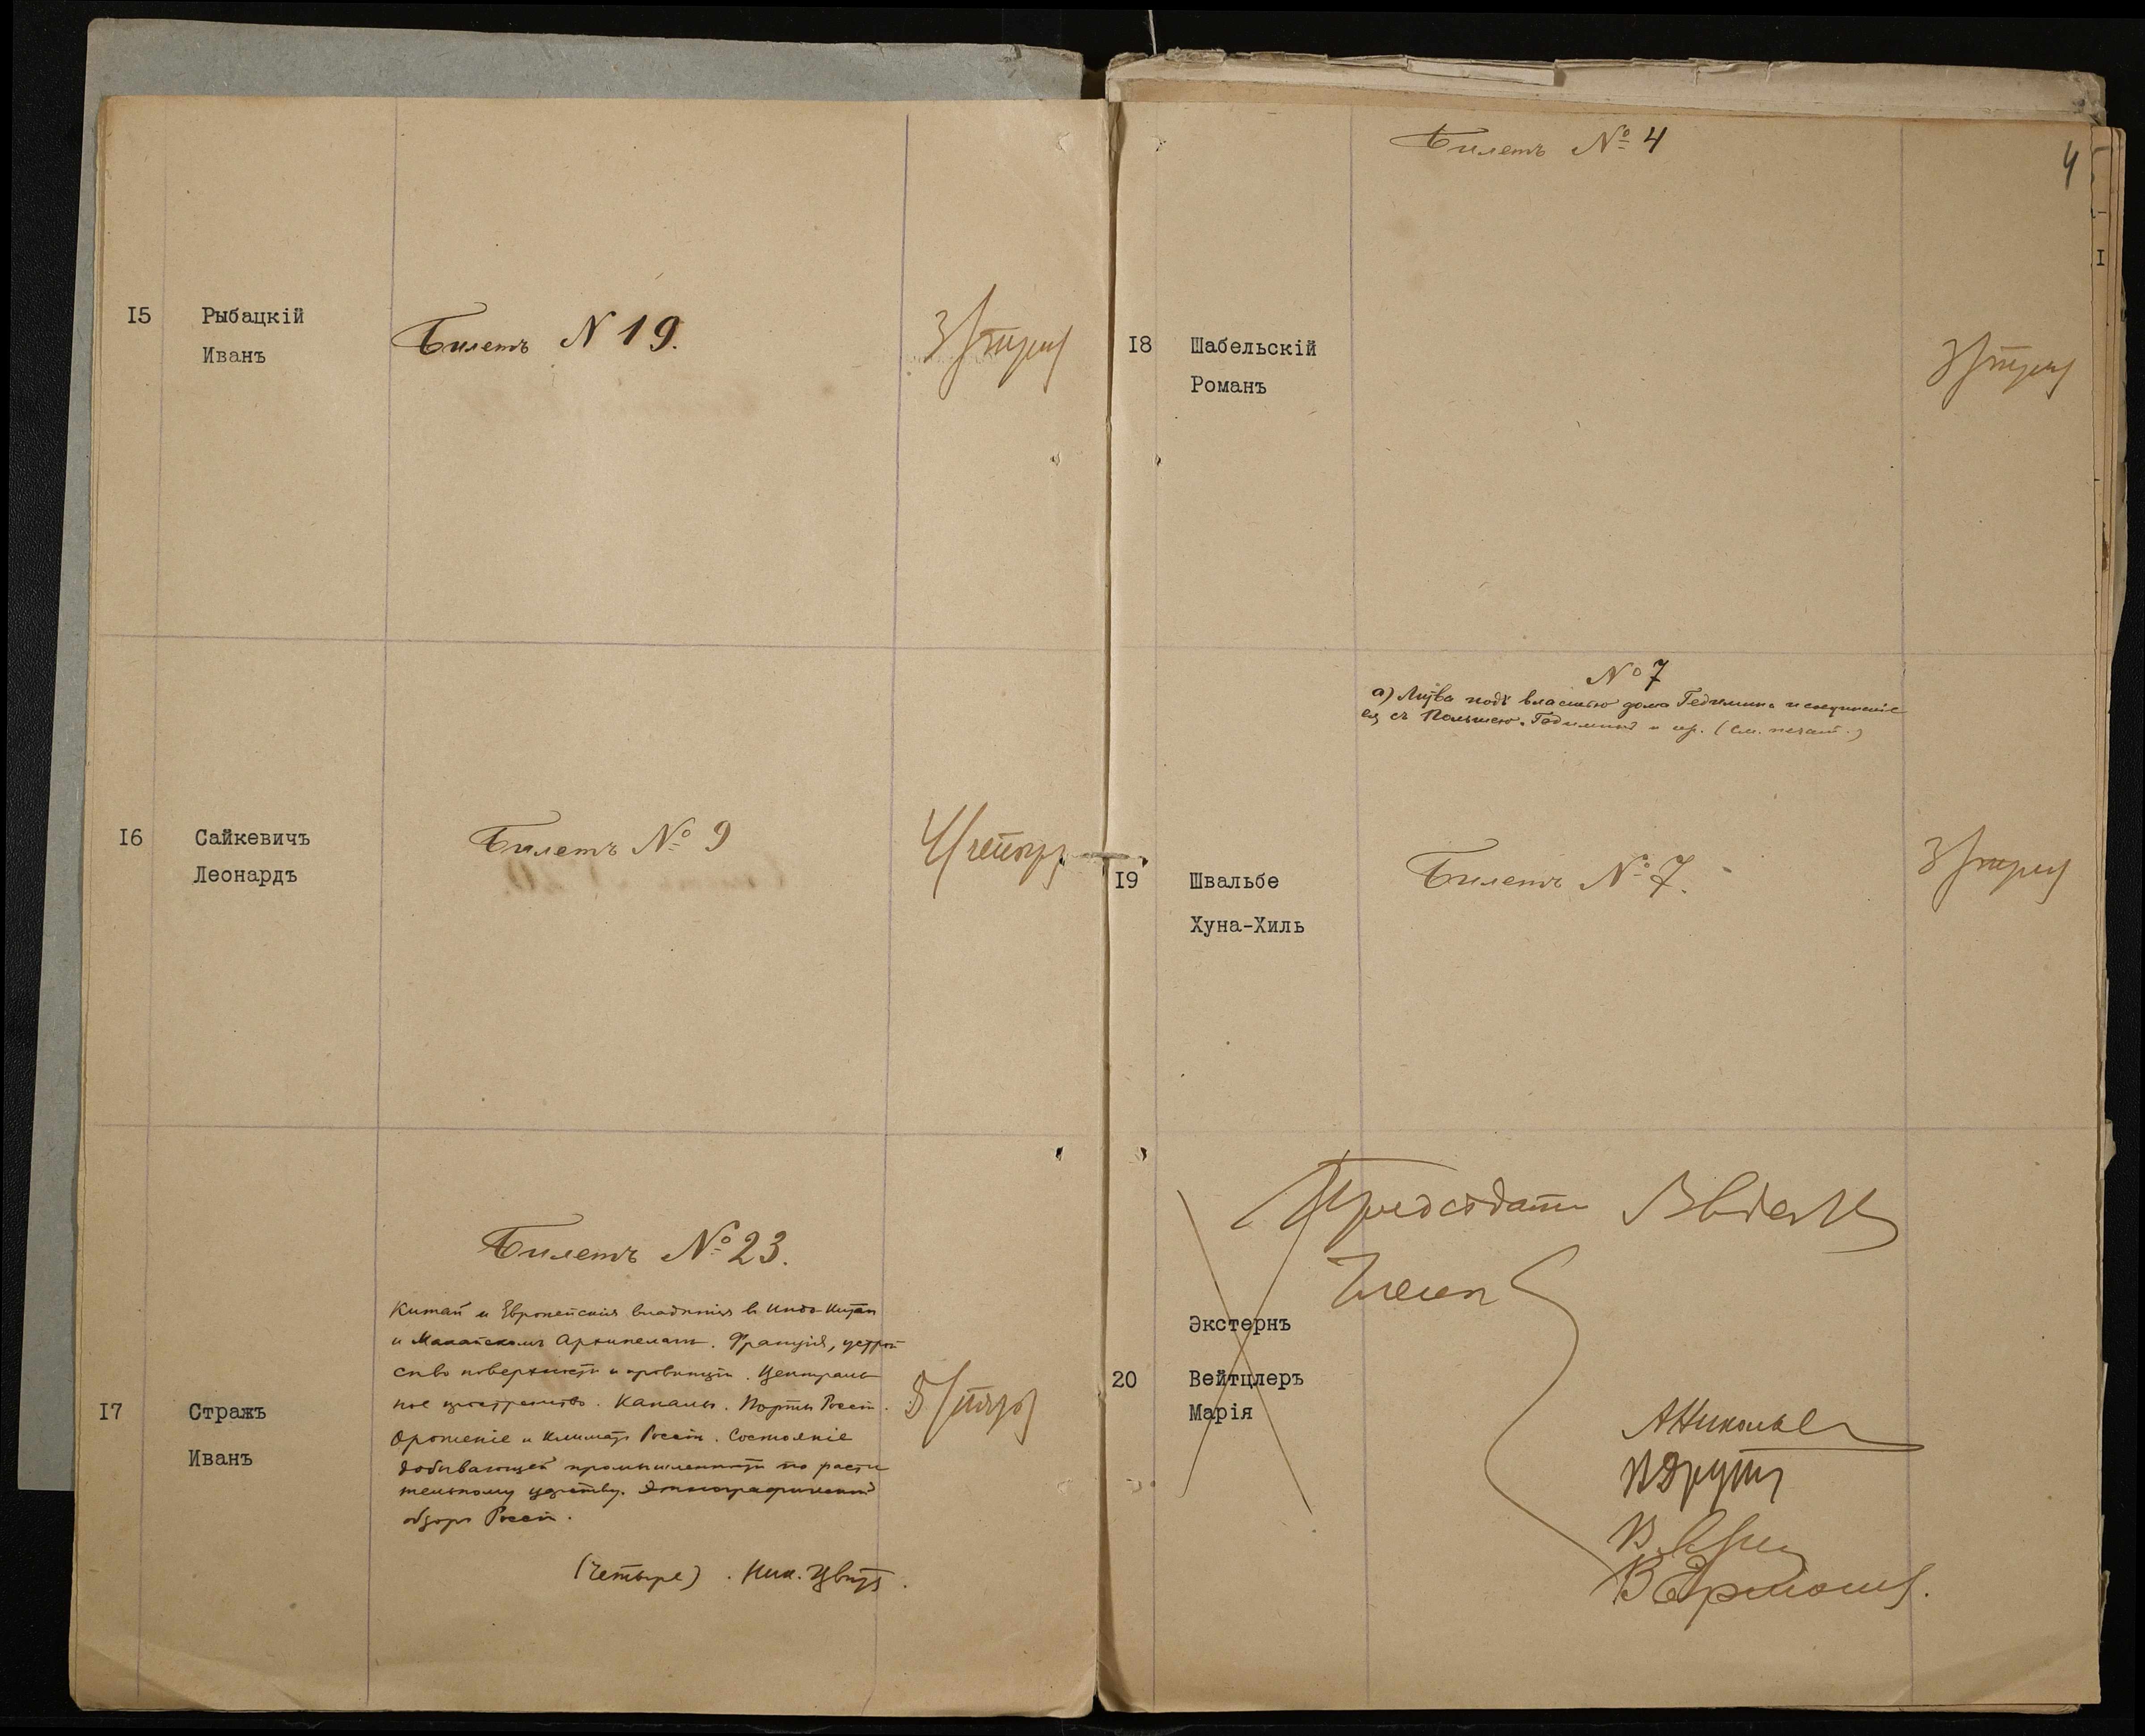 I5
Рыбацкій
Иванъ
Билетъ N 19.
3/три/
I6
Сайкевичъ
Леонардъ
Билетъ № 9
4/четыр/
I7
Стражъ
Иванъ
Билетъ № 23.
Китай и Европейскія владѣнія в Индо-Китаѣ
и Малайскомъ Архипелагѣ. Франція, устрой
ство поверхности и провинціи. Централь
ное пространство. Каналы. Порты Россіи.
Орошеніе и климатъ Россіи. Состояніе
добывающей промышленности по расти
тельному царству. Этнографическій
обзоръ Россіи.
(четыре). Ник. Цвѣтъ.
5/пять/
4
Билетъ № 4
I8
Шабельскій
Романъ
3/три/
№ 7
а) Литва подъ властью дома Гедимина и соединеніе
ея съ Польшею. Гедиминъ и пр. (см. печат.)
I9
Швальбе
Хуна-Хиль
Билетъ № 7.
3/три/
Предсѣдат
Члены
Экстернъ
20
Вейтцлеръ
Марія
I